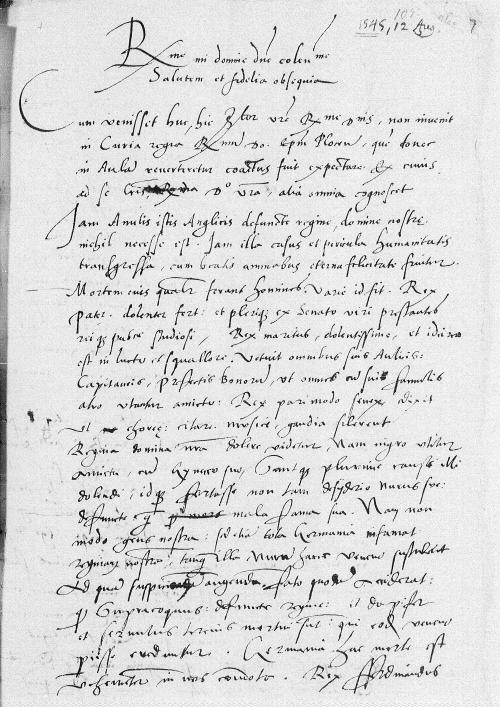 1545, 12 Aug. 7
Rme mi domine dne colenme
Salutem et fidelia obsequia
Cum venisset huc, hic Nor vre Rme D nis, non invenit
in Curia regia Rmum Do. Epm Plocen, que donec
in Aula reverteretur coactus fuit expectare. Ex cuius
ad se D° vra, alia omnia cognoscet
Jam Anulis istis Anglicis defuncte regine, domine nostre,
nichil necesse est. Jam illa casus et pericula humanitatis
transgressa, cum beatis animabus eterna felicitate fruitur.
Mortem eius qualr ferant homines, varie id fit. Rex
pater. dolenter fert: et pleriq ex Senato viri prestantes
rei q publce studiosi, Rex maritus, dolentissime, et ideo
est in luctu et squallore. Vetuit omnibus suis Aulicis:
Capitaneis, prefectis bonoru, ut omnes cu suis famulis
atro utantur amictu: Rex pari modo senex, dixit
ut choree: citare. musice, gaudia silerent
Regina domina nra dolere videtur, Nam nigro utitur
amictu, cu gyneceo suo, Santq plurime cause illi
dolendi: idq fortasse non tam desyderio nurus sue:
defuncte q mala fama sua. Nam non
modo gens nostra: sed etia tota Germania infamat
reginam nostra, tanq illa Nurum hanc veneno sustulerit
Ad qua suspicione augenda fato quoda acciderat:
q defuncte regine: it dapifer
et servulus tercius mortui sut: qui eode veneno
periisse creduntur. Germania hac morte est
vehementer in nos comota. Rex Ferdinandus